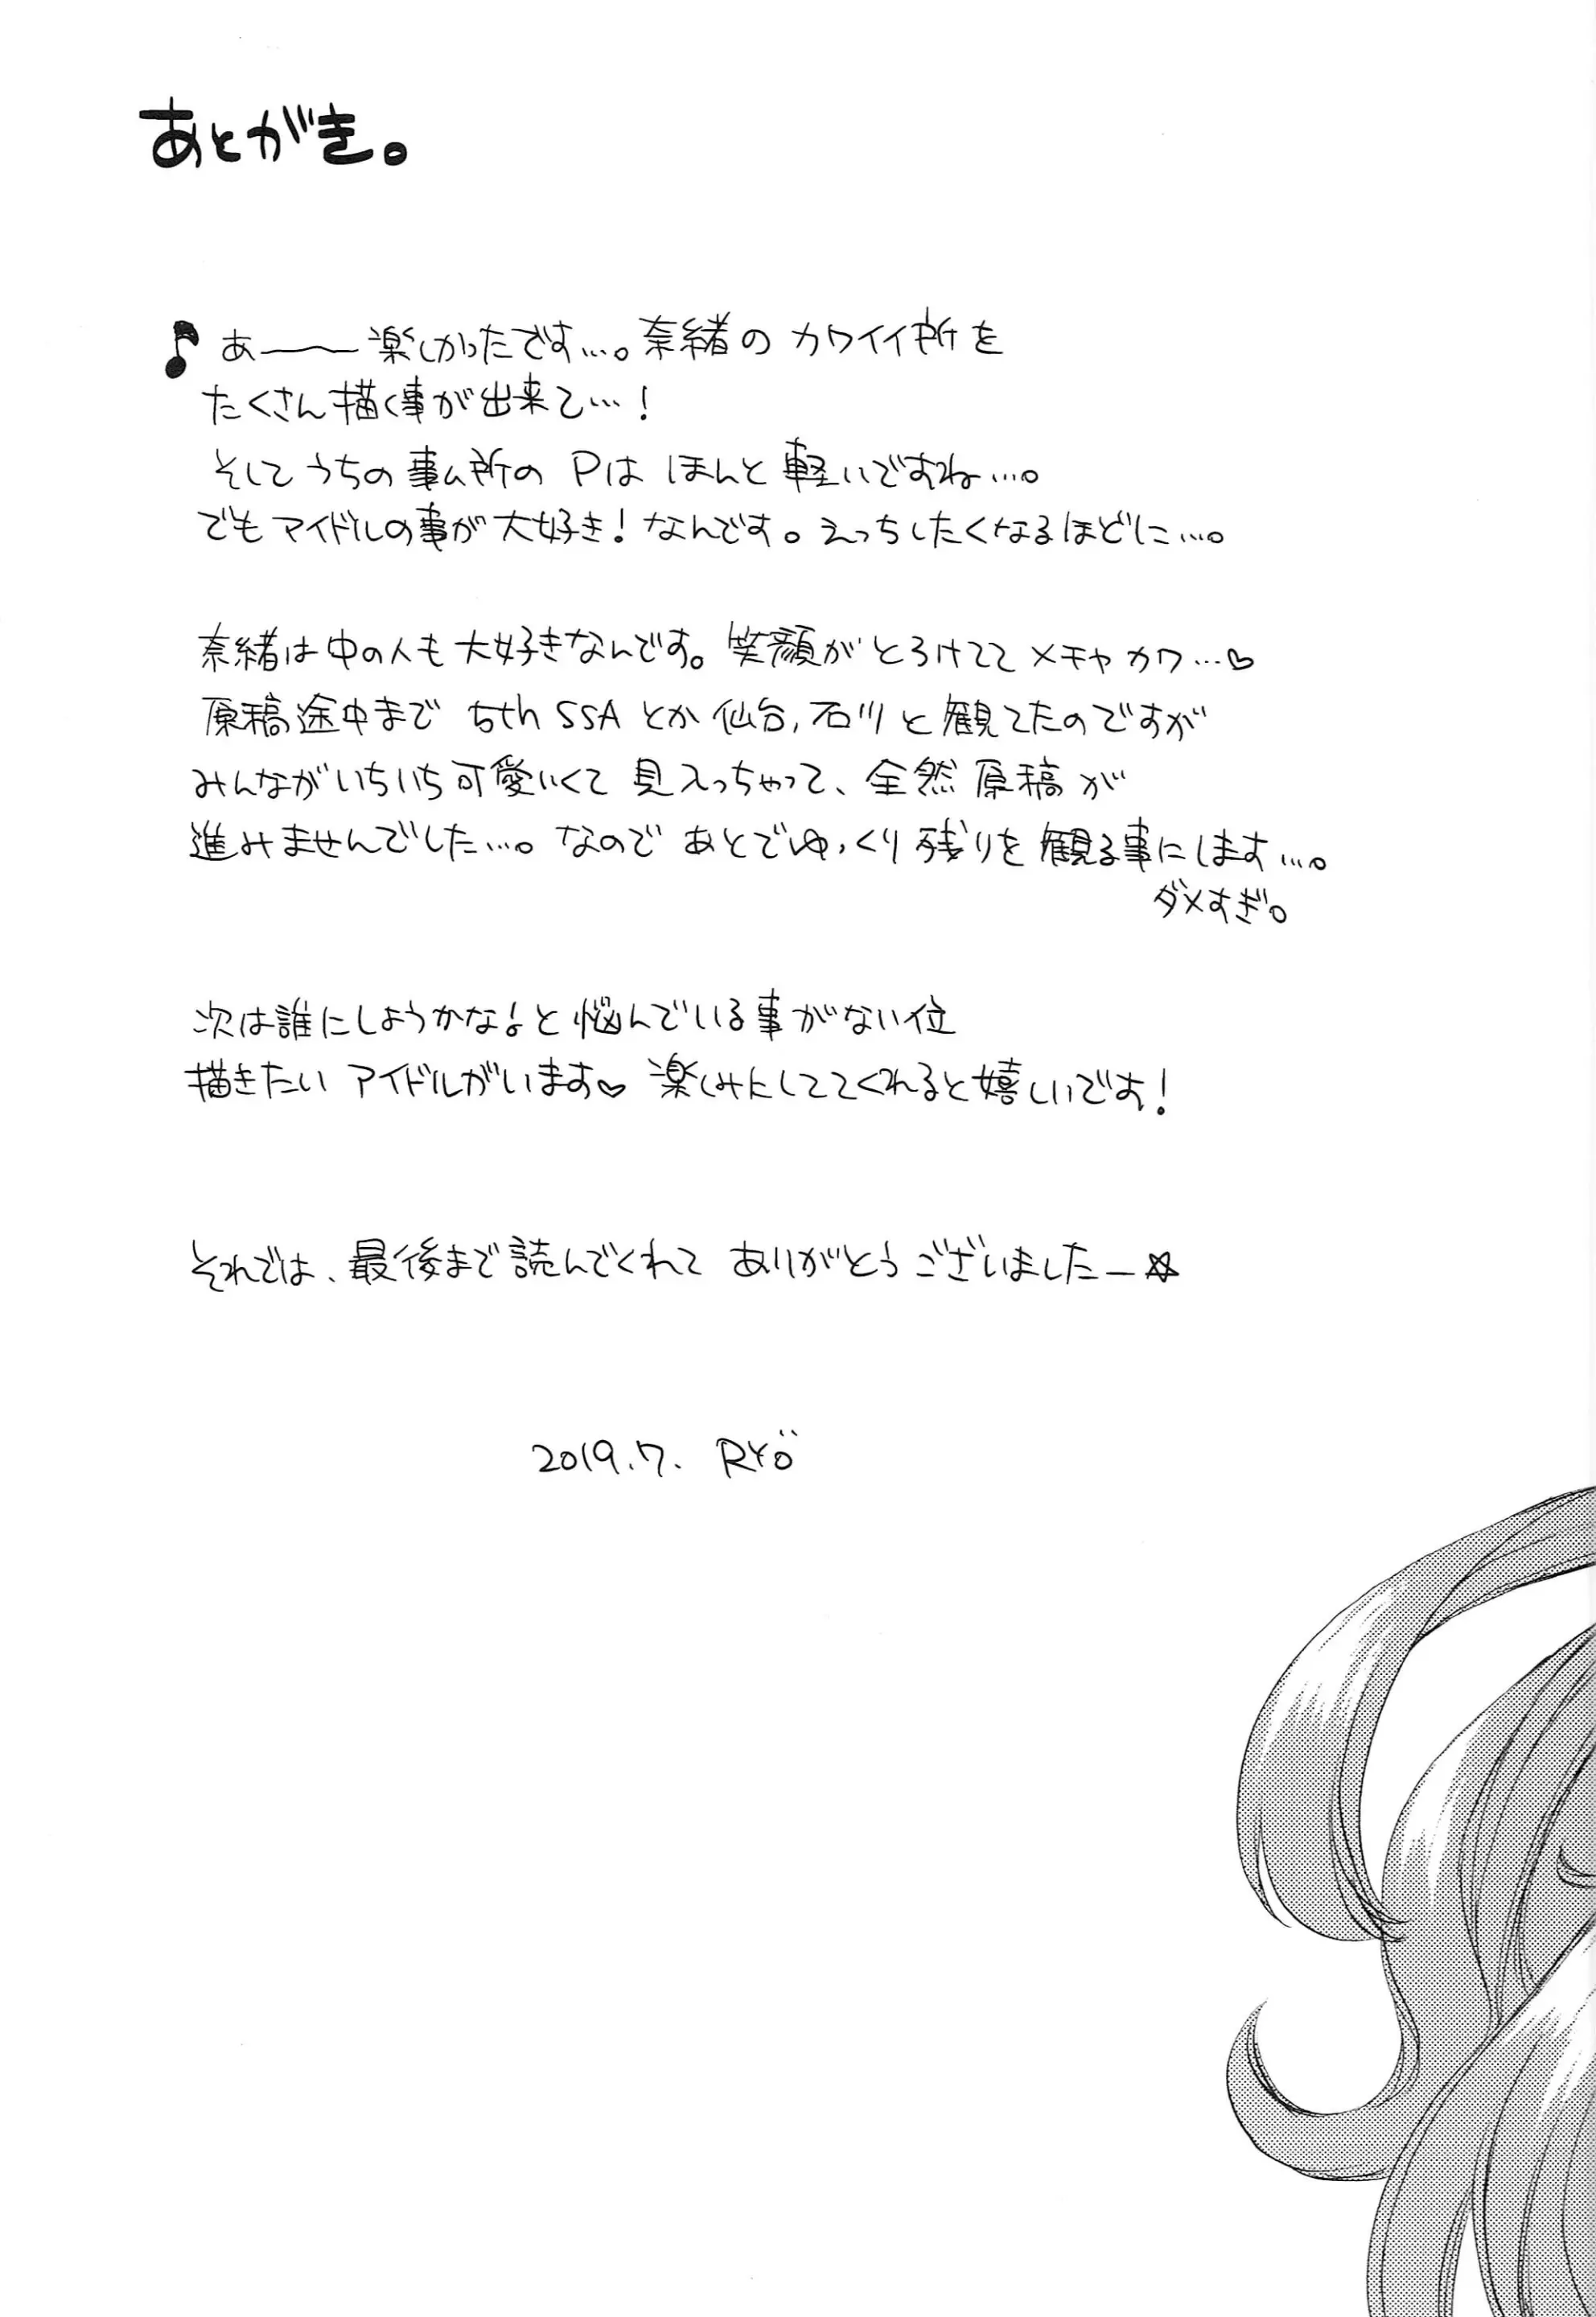 あとがき。
♪あ〜〜楽しかったです…。奈緒のカワイイ所を
たくさん描く事が出来て…!
そしてうちの事ム所のPはほんと軽いですね…。
でもアイドルの事が大好き!なんです。えっちしたくなるほどに…。
奈緒は中の人も大好きなんです。笑顔がとろけててメチャカワ…♡
原稿途中まで 5th SSAとか仙台,石川と観てたのですが
みんながいちいち可愛いくて見入っちゃって、全然原稿が
進みませんでした…。なのであとでゆっくり残りを観る事にします…。
ダメすぎ。
次は誰にしようかな♪と悩んでいる事がない位
描きたいアイドルがいます♡ 楽しみにしててくれると嬉しいです!
それでは、最後まで読んでくれてありがとうございましたー☆
2019.7. RYÖ